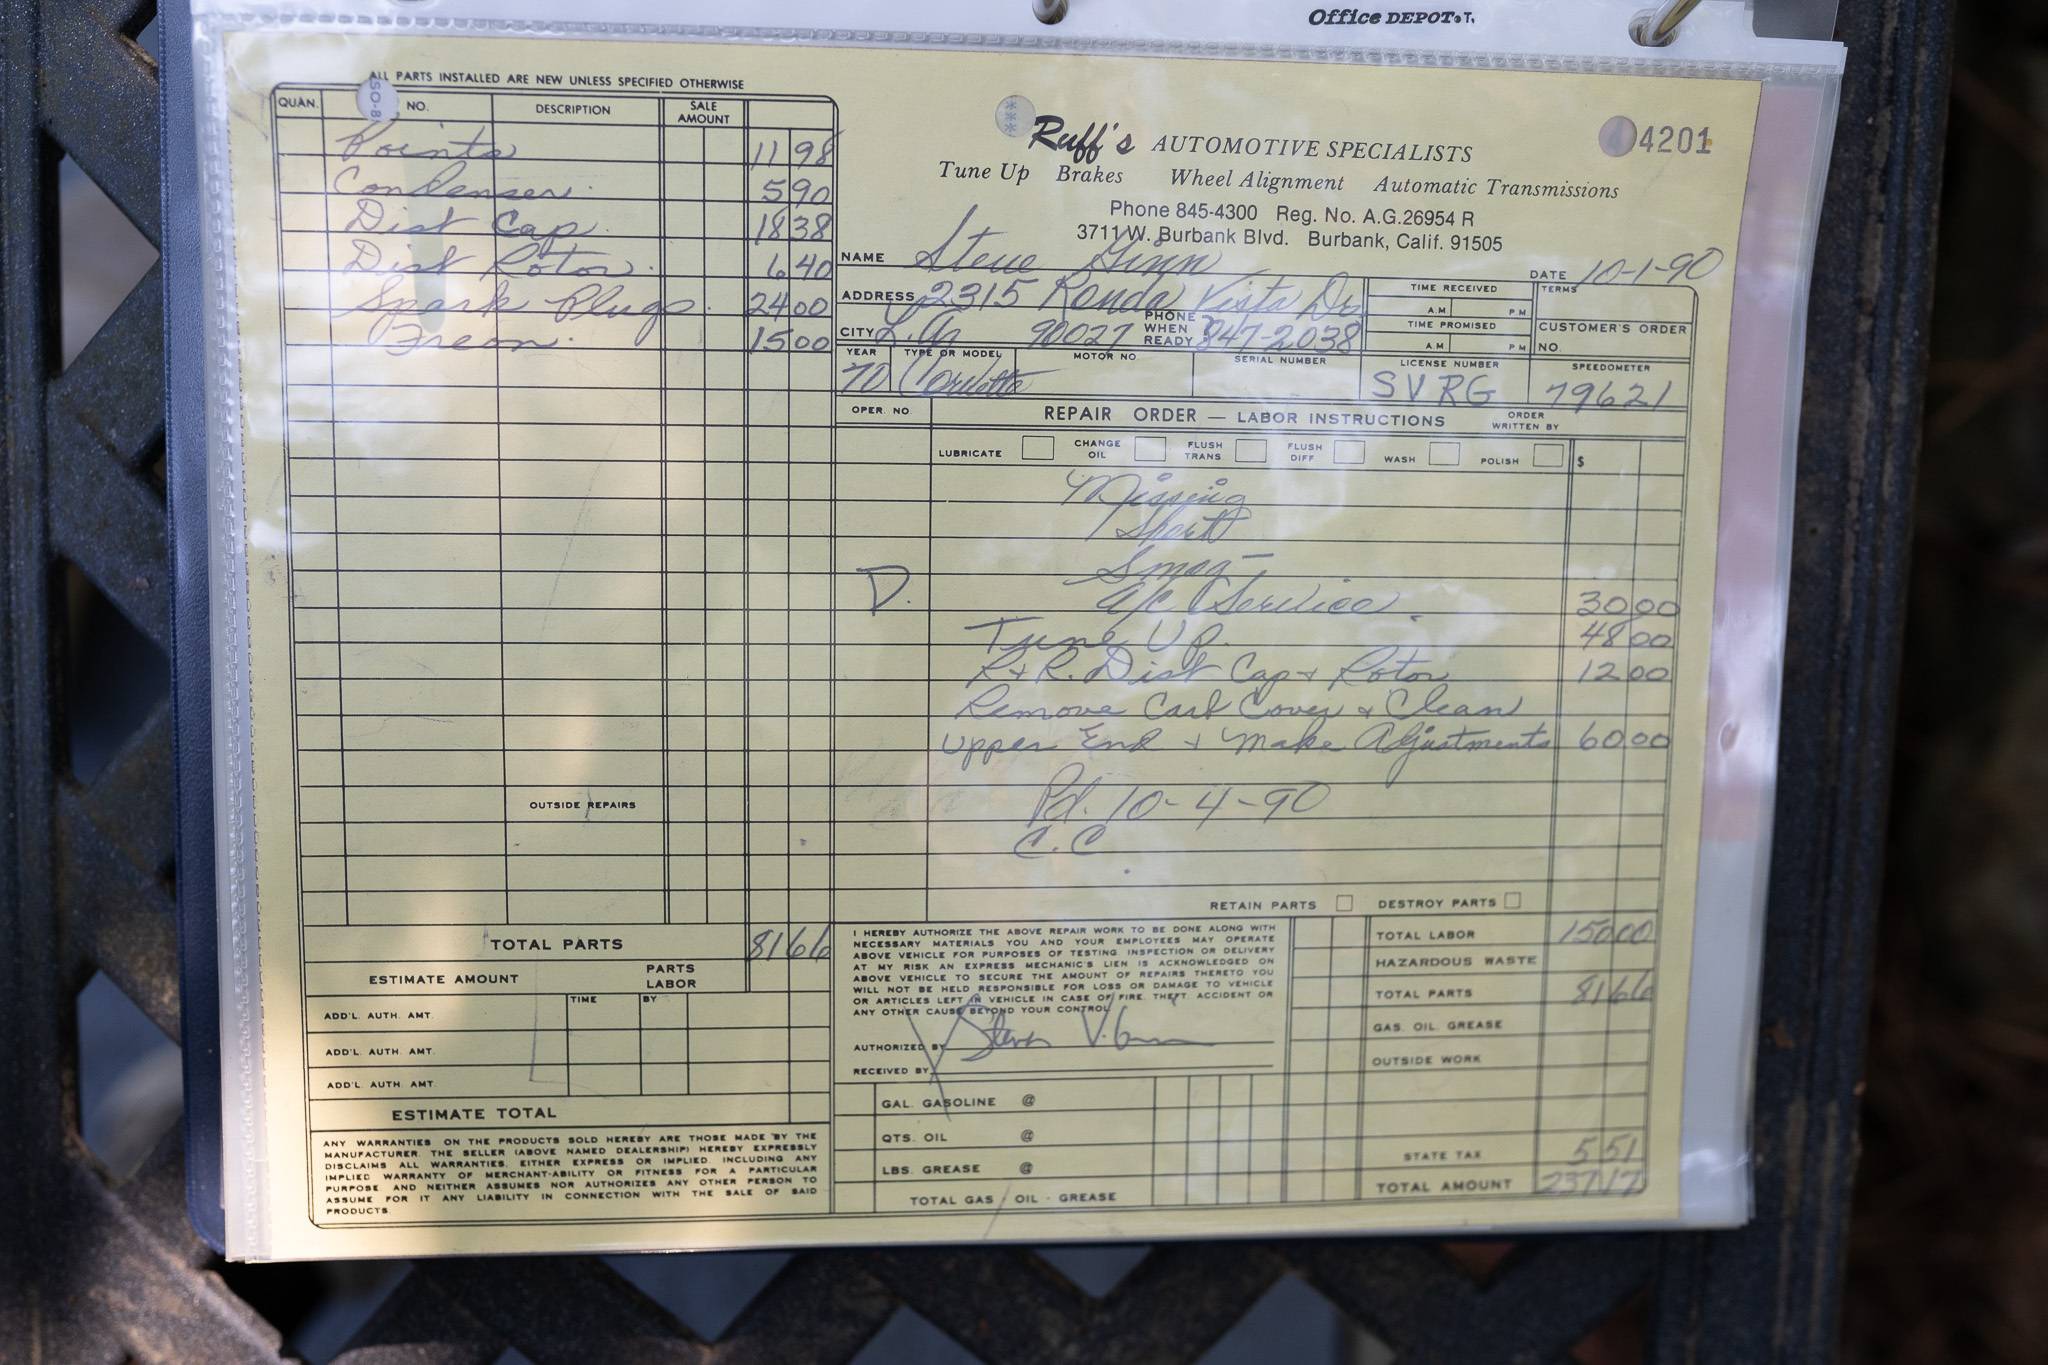 Office DEPOT
ALL PARTS INSTALLED ARE NEW UNLESS SPECIFIED OTHERWISE
QUAN. NO. DESCRIPTION SALE AMOUNT
Points 11 98
Condenser 5 90
Dist Cap 18 38
Dist Rotor 6 40
Spark Plugs 24 00
Freon 15 00
OUTSIDE REPAIRS
TOTAL PARTS 81 66
ESTIMATE AMOUNT PARTS LABOR
TIME BY
ADD'L. AUTH. AMT.
ADD'L. AUTH. AMT.
ADD'L. AUTH. AMT.
ESTIMATE TOTAL
ANY WARRANTIES ON THE PRODUCTS SOLD HEREBY ARE THOSE MADE BY THE
MANUFACTURER. THE SELLER (ABOVE NAMED DEALERSHIP) HEREBY EXPRESSLY
DISCLAIMS ALL WARRANTIES, EITHER EXPRESS OR IMPLIED, INCLUDING ANY
IMPLIED WARRANTY OF MERCHANT-ABILITY OR FITNESS FOR A PARTICULAR
PURPOSE AND NEITHER ASSUMES NOR AUTHORIZES ANY OTHER PERSON TO
ASSUME FOR IT ANY LIABILITY IN CONNECTION WITH THE SALE OF SAID
PRODUCTS.
Ruff's AUTOMOTIVE SPECIALISTS
44201
Tune Up Brakes Wheel Alignment Automatic Transmissions
Phone 845-4300 Reg. No. A.G.26954 R
3711 W. Burbank Blvd. Burbank, Calif. 91505
NAME Steve Ginn DATE 10-1-90
ADDRESS 2315 Ronda Vista Dr TIME RECEIVED A.M PM TERMS
CITY L.A. 90027 PHONE WHEN READY 847-2038 TIME PROMISED A.M PM CUSTOMER'S ORDER NO.
YEAR TYPE OR MODEL MOTOR NO. SERIAL NUMBER LICENSE NUMBER SPEEDOMETER
70 Corvette SVRG 79621
OPER. NO. REPAIR ORDER — LABOR INSTRUCTIONS ORDER WRITTEN BY
LUBRICATE CHANGE OIL FLUSH TRANS FLUSH DIFF WASH POLISH $
Missing
Smog
D. A/C Service 30 00
Tune Up. 48 00
R+R. Dist Cap + Rotor 12 00
Remove Carb Cover & Clean
Upper End + Make Adjustments 60 00
Pd. 10-4-90
C.C
RETAIN PARTS DESTROY PARTS
I HEREBY AUTHORIZE THE ABOVE REPAIR WORK TO BE DONE ALONG WITH
NECESSARY MATERIALS YOU AND YOUR EMPLOYEES MAY OPERATE
ABOVE VEHICLE FOR PURPOSES OF TESTING INSPECTION OR DELIVERY
AT MY RISK AN EXPRESS MECHANIC'S LIEN IS ACKNOWLEDGED ON
ABOVE VEHICLE TO SECURE THE AMOUNT OF REPAIRS THERETO YOU
WILL NOT BE HELD RESPONSIBLE FOR LOSS OR DAMAGE TO VEHICLE
OR ARTICLES LEFT IN VEHICLE IN CASE OF FIRE, THEFT, ACCIDENT OR
ANY OTHER CAUSE BEYOND YOUR CONTROL
AUTHORIZED BY
RECEIVED BY
GAL. GASOLINE @
QTS. OIL @
LBS. GREASE @
TOTAL GAS - OIL - GREASE
TOTAL LABOR 150 00
HAZARDOUS WASTE
TOTAL PARTS 81 66
GAS. OIL. GREASE
OUTSIDE WORK
STATE TAX 5 51
TOTAL AMOUNT 237 17